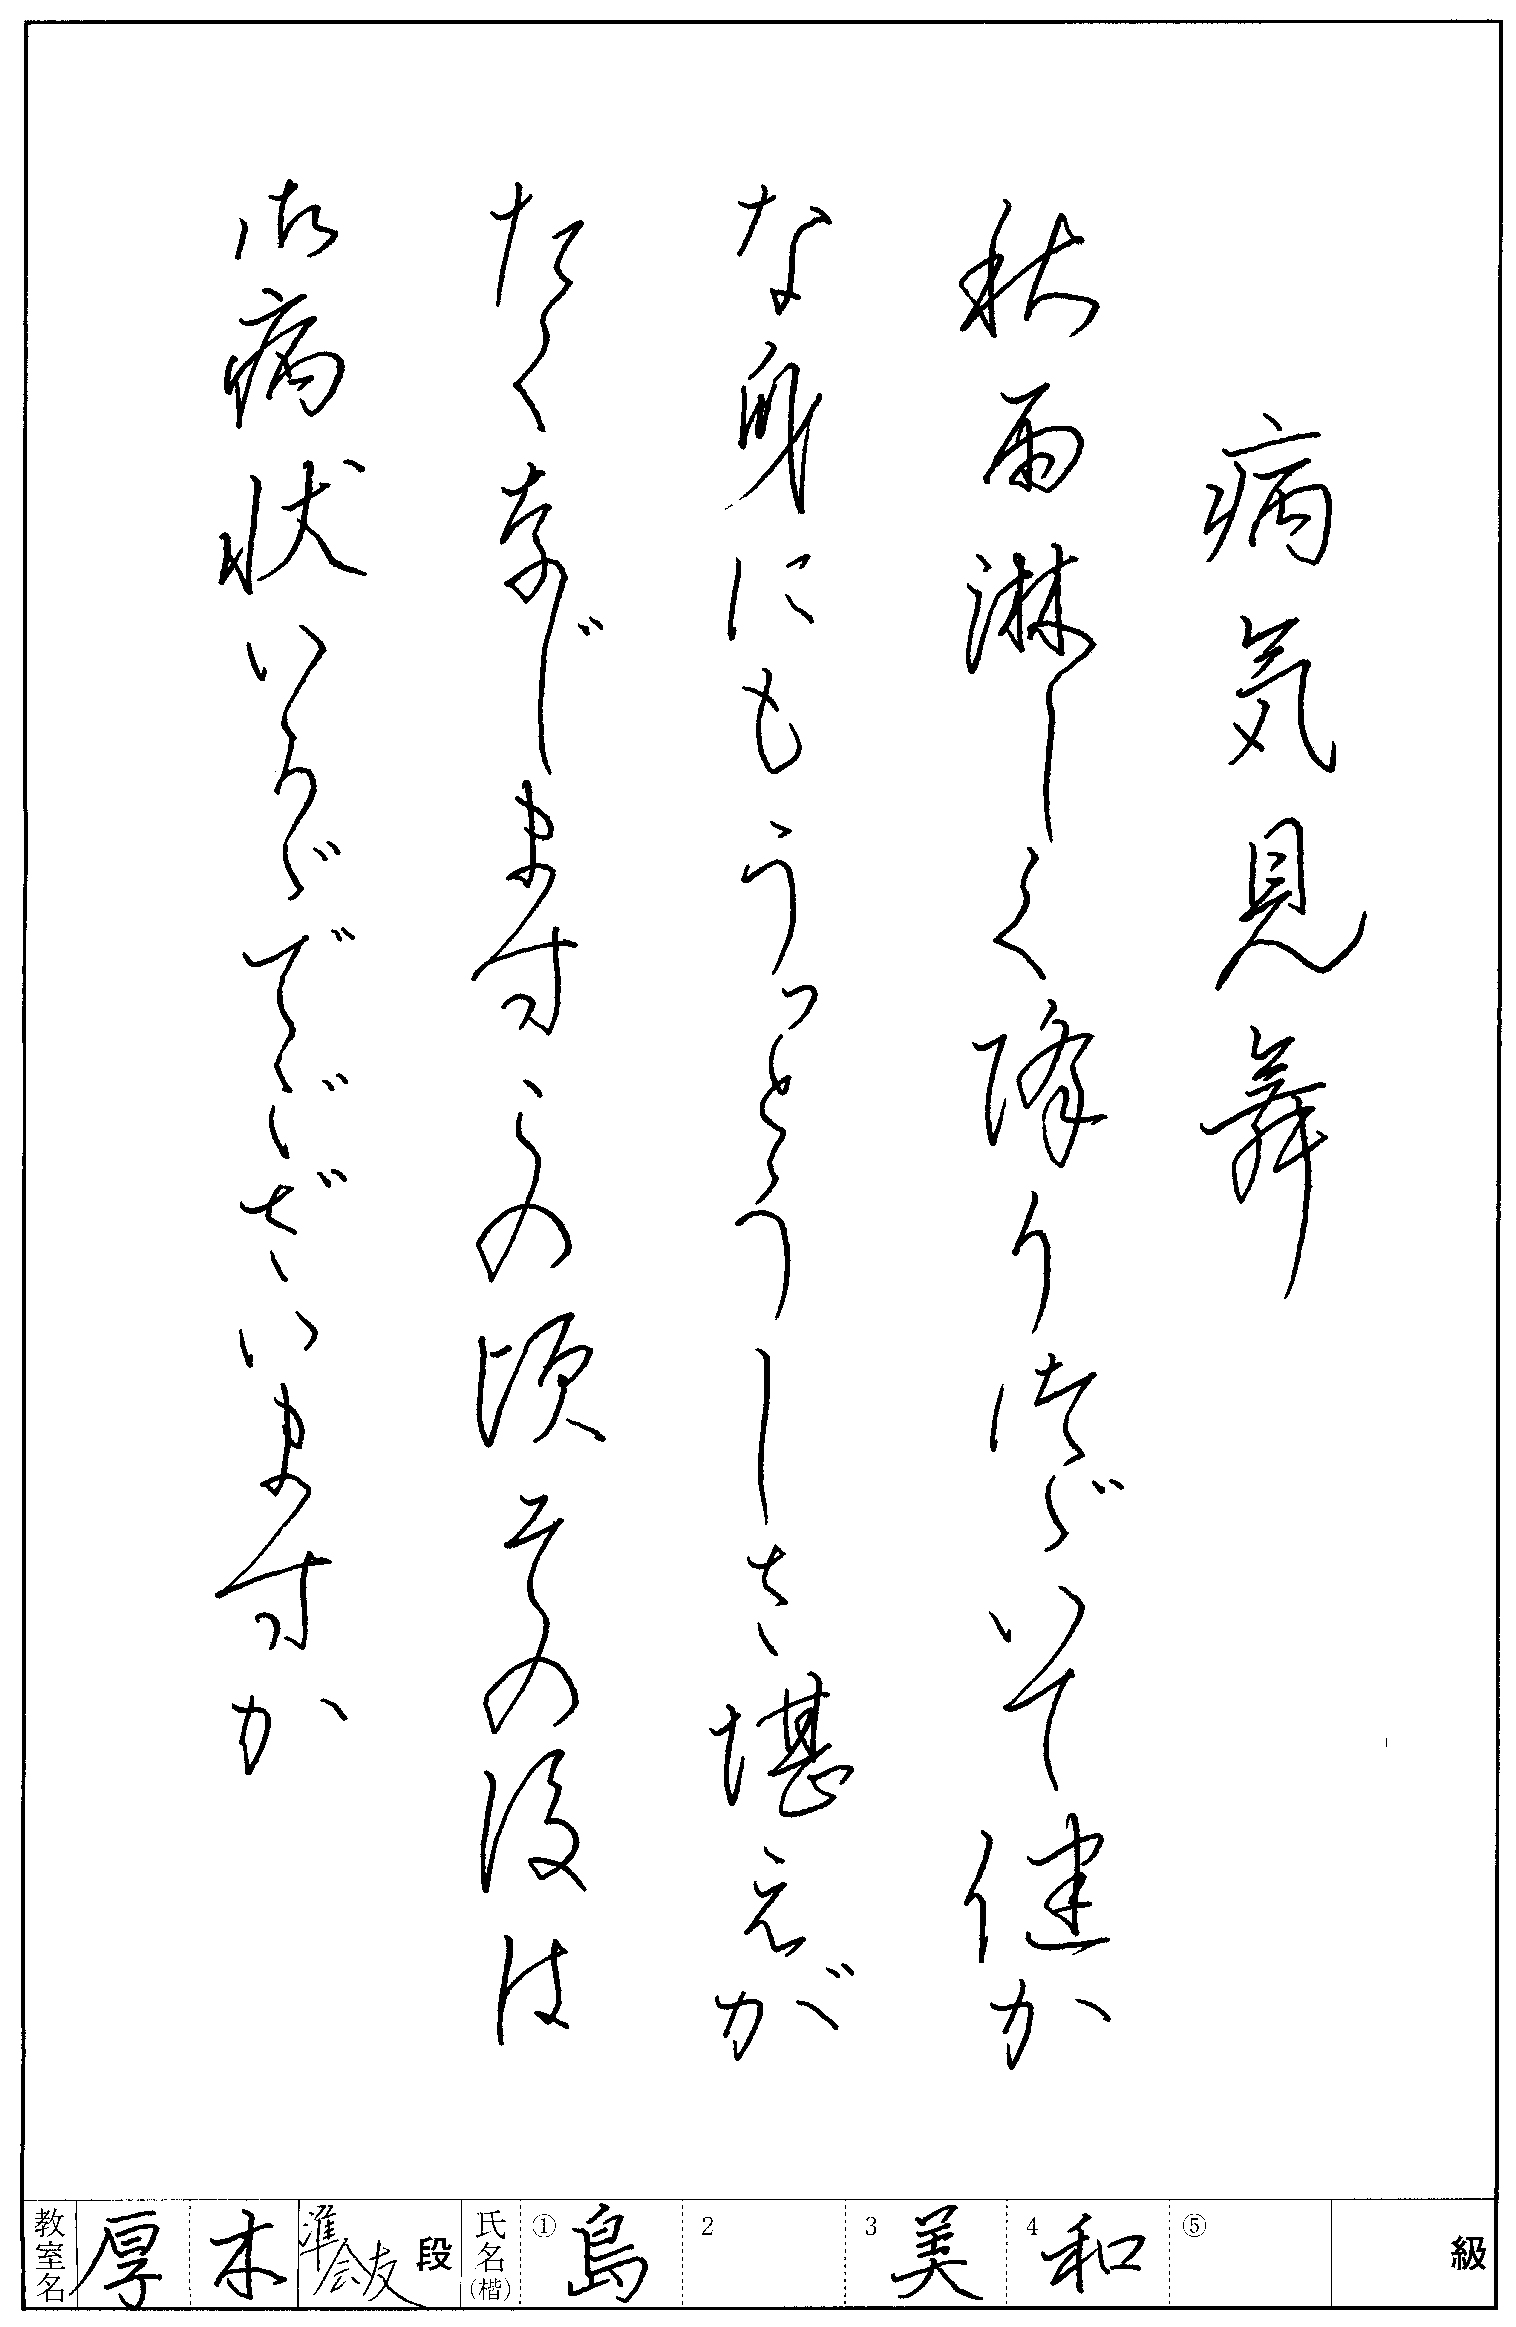 病気見舞
秋雨淋しく降りつづいて健か
な身にもうっとうしさ堪えが
たく存じますこの頃その後は
御病状いかがでございますか
教室名 厚木 準会友 段 氏名(楷) ① 島 2 3 美 4 和 ⑤ 級